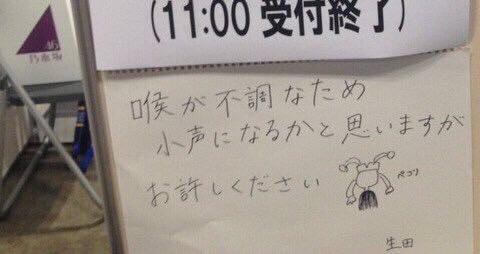 (11:00 受付終了)
46
乃木坂
喉が不調なため
小声になるかと思いますが
お許しください
ペコリ
生田